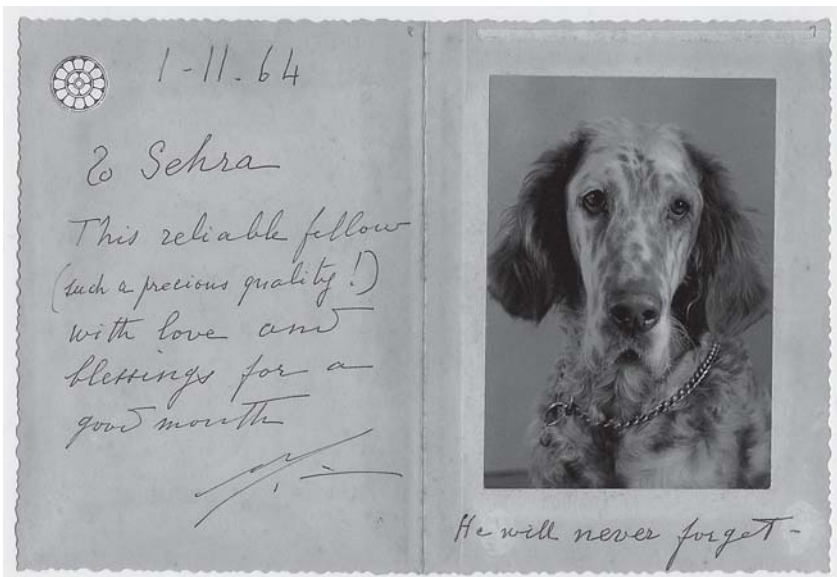 1-11.64
To Sehra
This reliable fellow
(such a precious quality!)
with love and
blessings for a
good month
He will never forget-